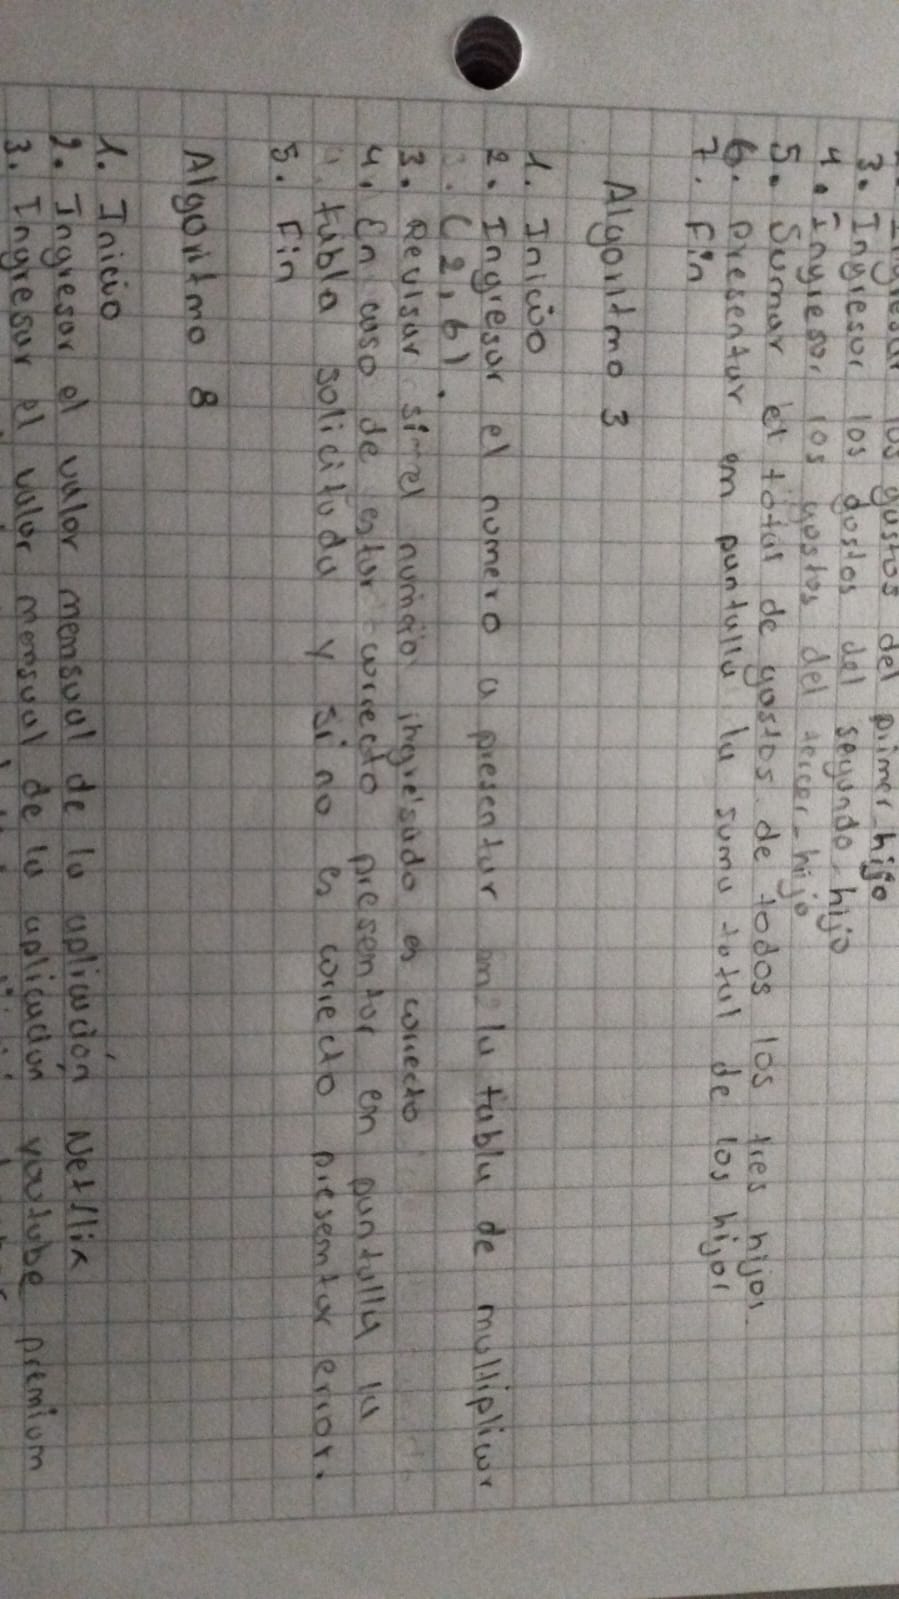 Ingresar los gastos del primer hijo
3. Ingresar los gastos del segundo hijo
4. Ingresar los gastos del tercer hijo
5. Sumar el total de gastos de todos los tres hijos.
6. Presentar en pantalla la suma total de los hijos
7. Fin
Algoritmo 3
1. Inicio
2. Ingresar el numero a presentar en la tabla de multiplicar
(2,6).
3. Revisar si el numero ingresado es correcto
4. En caso de estar correcto presentar en pantalla la
tabla solicitada y si no es correcto presentar error.
5. Fin
Algoritmo 8
1. Inicio
2. Ingresar el valor mensual de la aplicación Netflix
3. Ingresar el valor mensual de la aplicación youtube premium